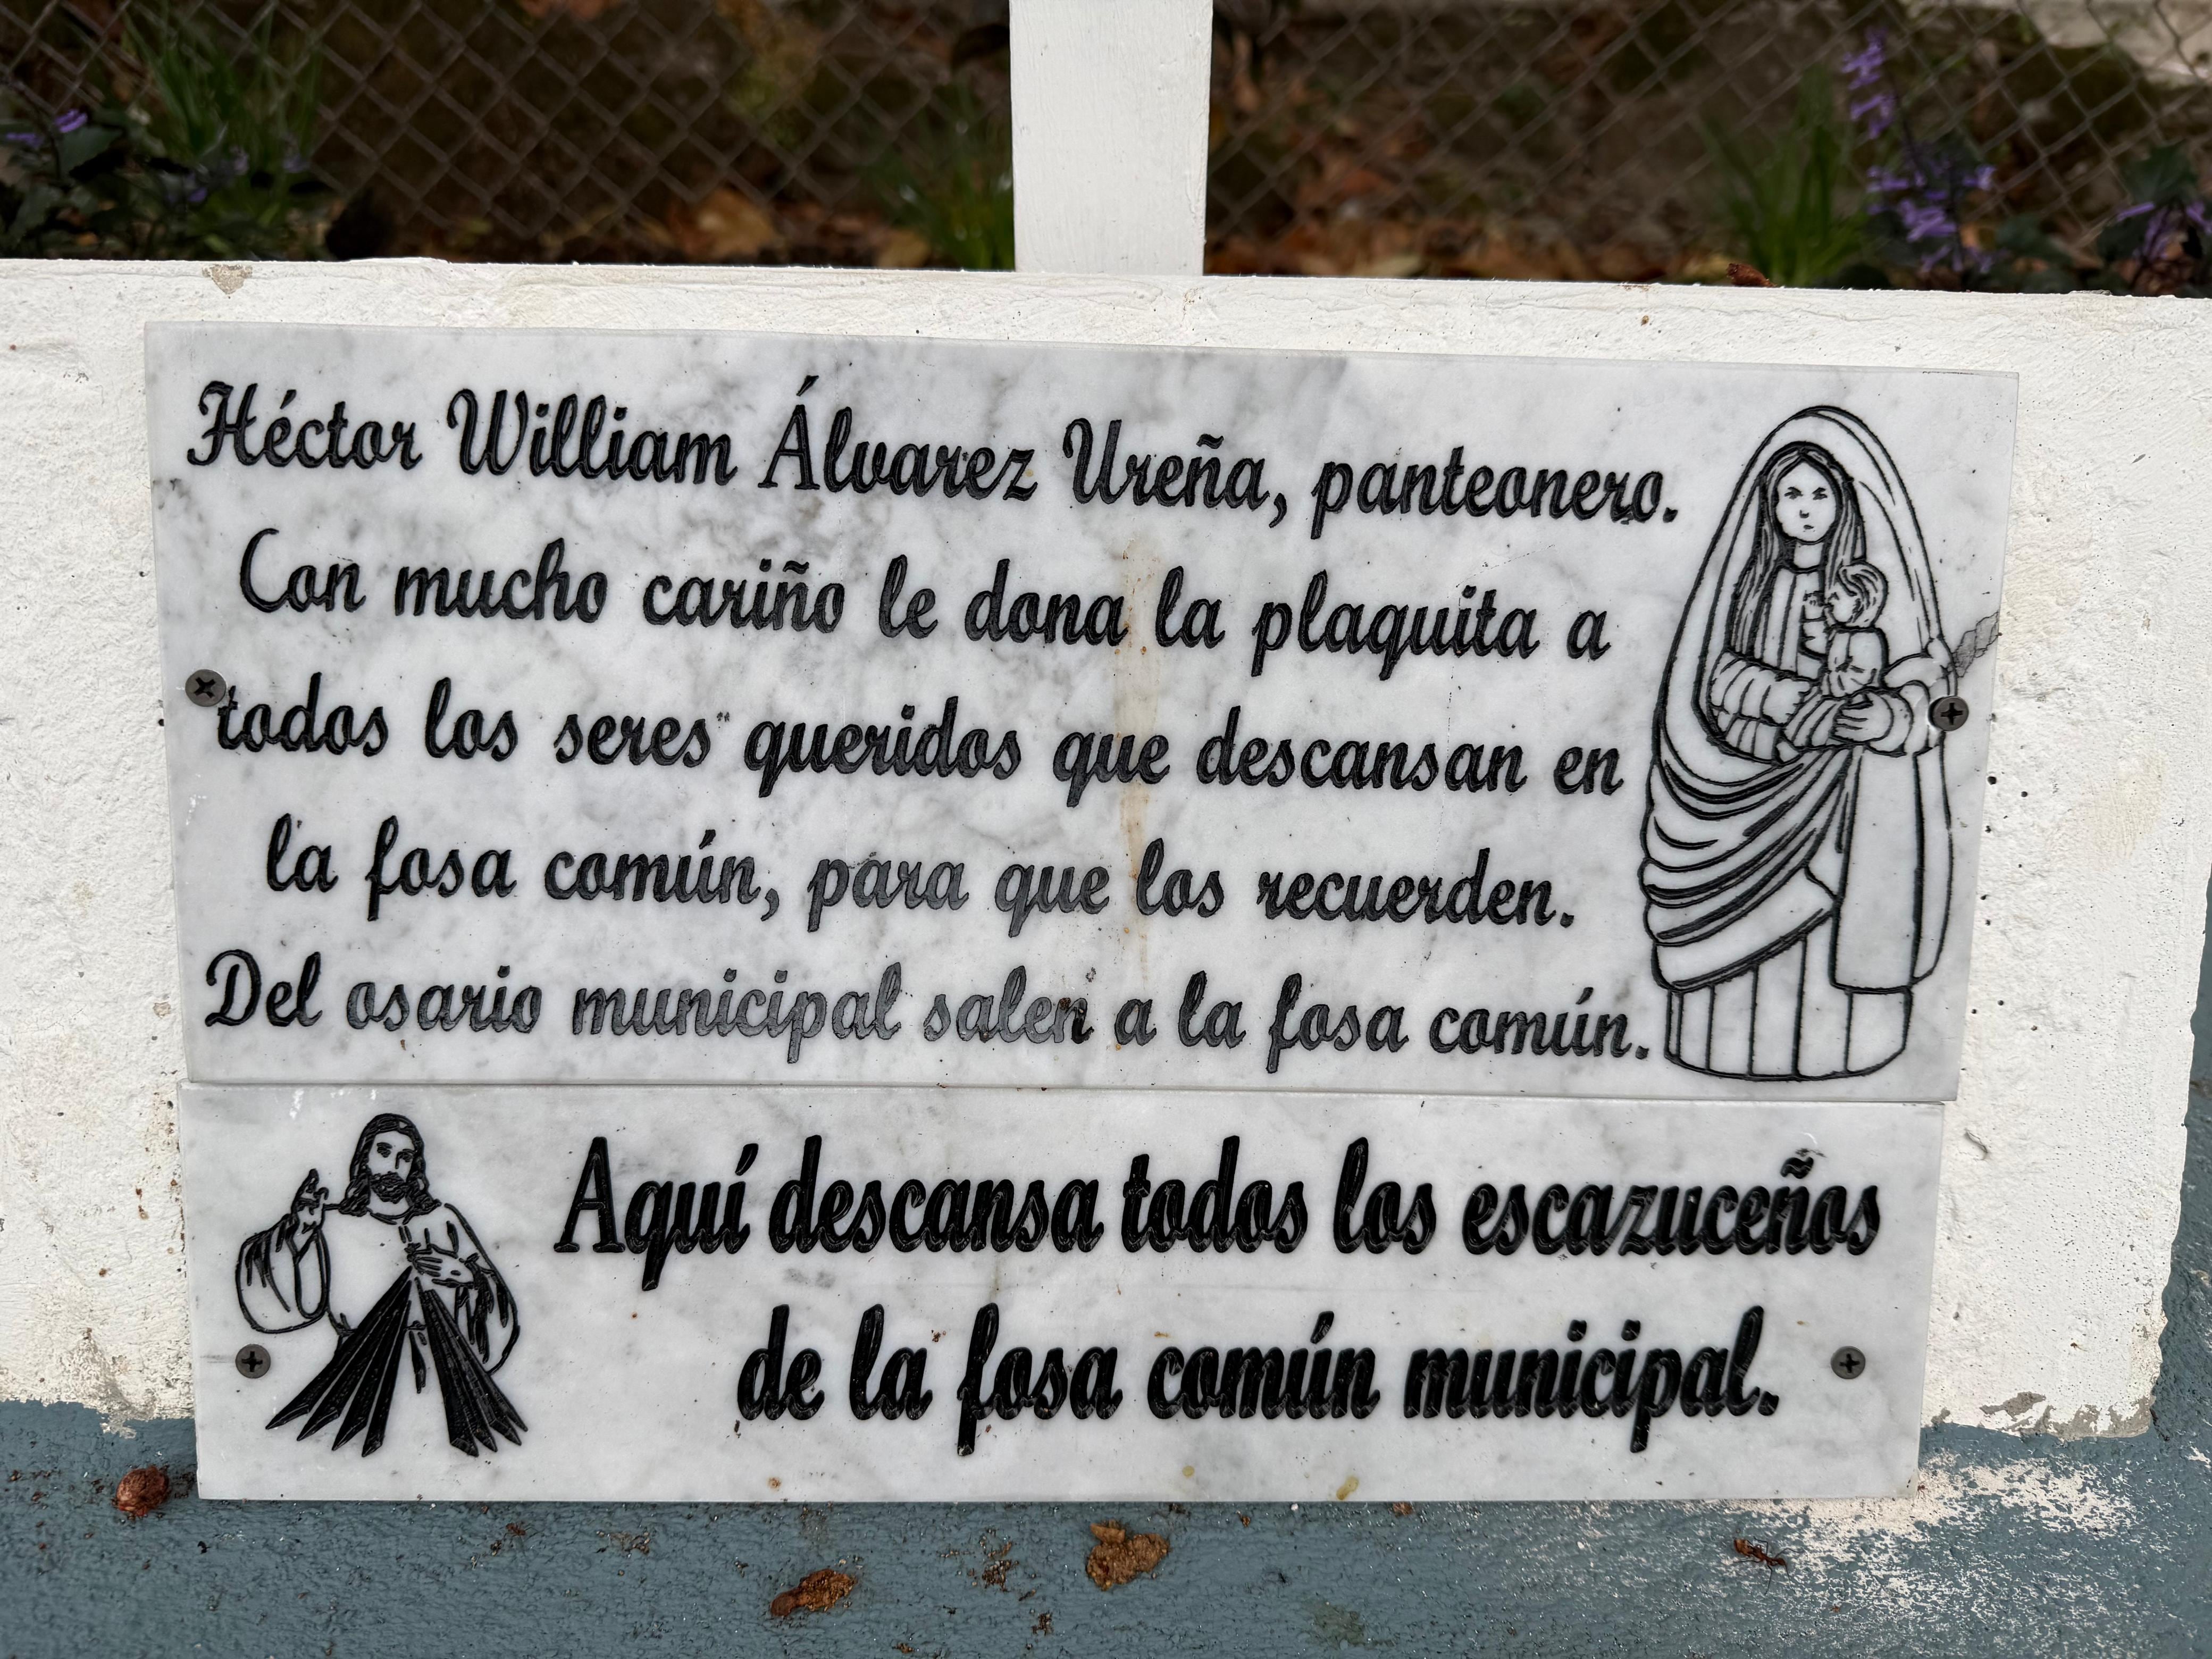 Héctor William Álvarez Ureña, panteonero.
Con mucho cariño le dona la plaquita a
todos los seres queridos que descansan en
la fosa común, para que los recuerden.
Del osario municipal salen a la fosa común.
Aquí descansa todos los escazuceños
de la fosa común municipal.